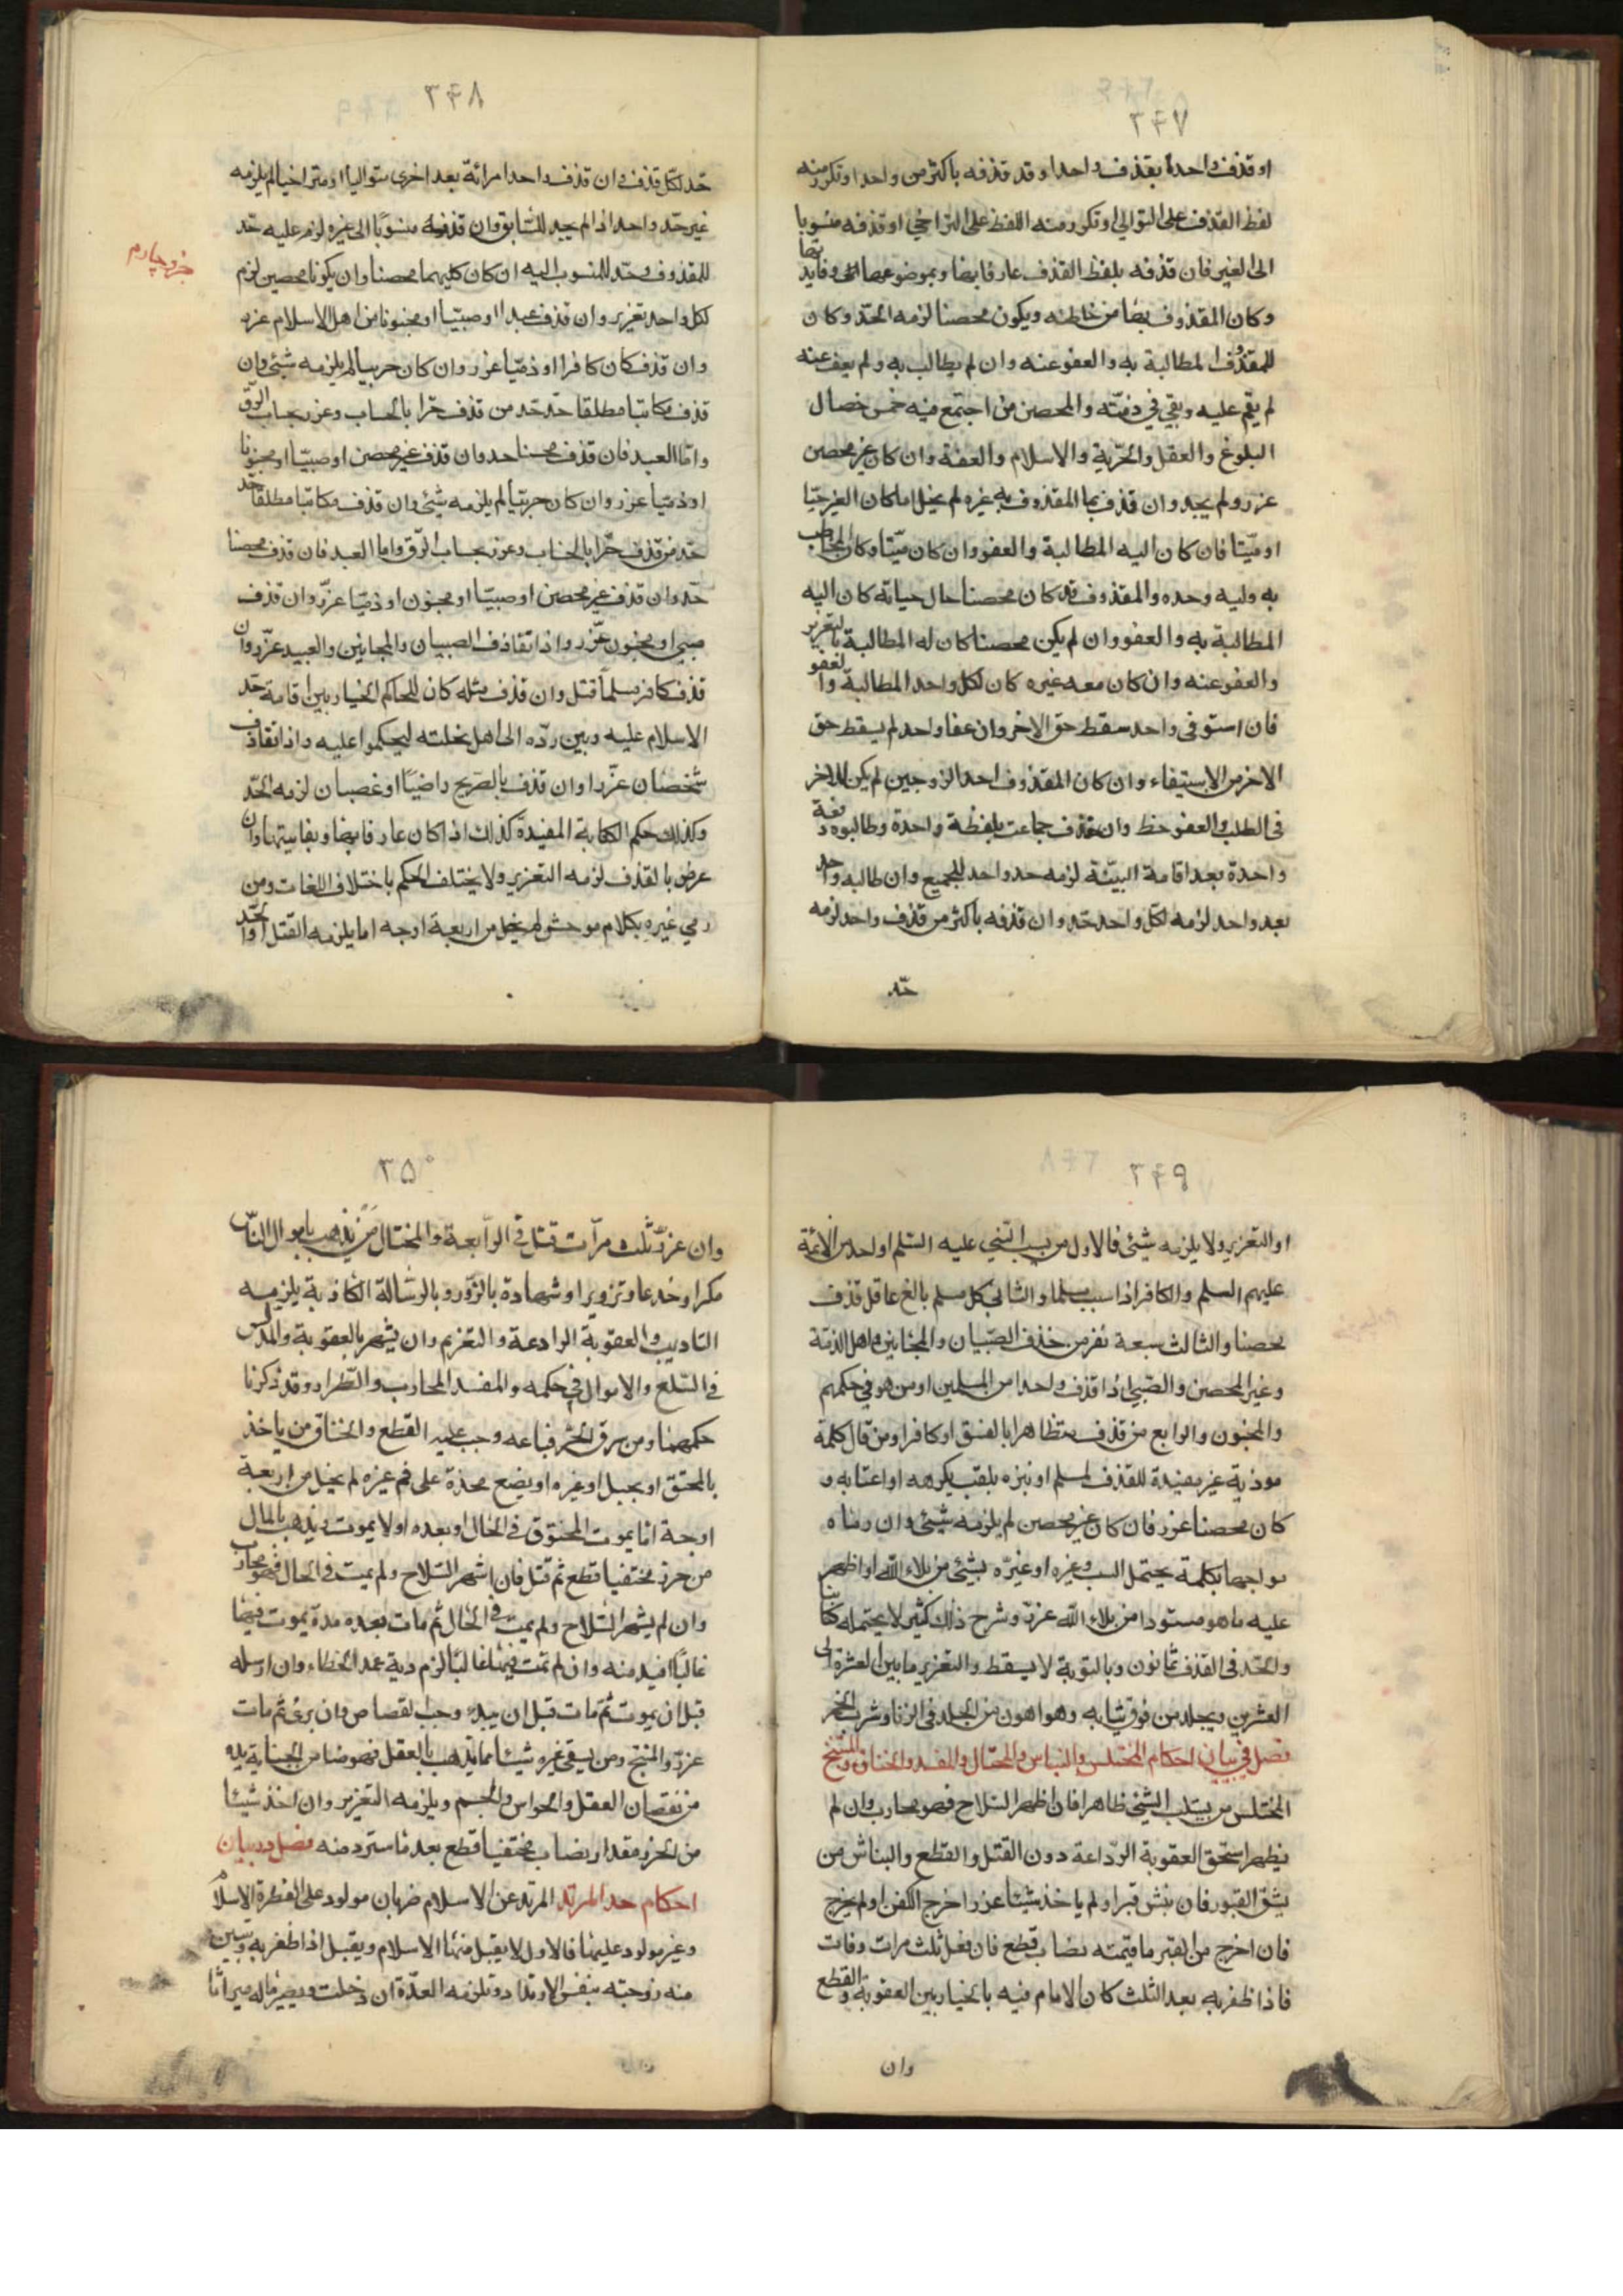 ۳۴۷
او قذف واحدا بقذف واحد او قد قذفه باكثر من واحد او تكرر منه
لفظ القذف على التوالي او تكرر منه اللفظ على التراخي او قذفه منسوبا
الى الغير فان قذفه بلفظ القذف عارفا بها وبموضوعها وفايدتها
وكان المقذوف بها من خاطبه ويكون محصنا لزمه الحد وكان
للمقذوف المطالبة به والعفو عنه وان لم يطالب به ولم يعف عنه
لم يقم عليه وبقي في ذمته والمحصن من اجتمع فيه خمس خصال
البلوغ والعقل والحرية والاسلام والعفة وان كان غير محصن
عزر ولم يحد وان قذف بها المقذوف به غيره لم يخل اما كان الغير حيا
او ميتا فان كان اليه المطالبة والعفو وان كان ميتا وكان المخاطب
به وليه وحده والمقذوف قد كان محصنا حال حياته كان اليه
المطالبة به والعفو وان لم يكن محصنا كان له المطالبة بالتعزير
والعفو عنه وان كان معه غيره كان لكل واحد المطالبة والعفو
فان استوفى واحد سقط حق الاخر وان عفا واحد لم يسقط حق
الاخر من الاستيفاء وان كان المقذوف احد الزوجين لم يكن للاخر
في الطلب والعفو حظ وان قذف جماعت بلفظة واحدة وطالبوه دفعة
واحدة بعد اقامة البينة لزمه حد واحد للجميع وان طالبه واحد
بعد واحد لزمه لكل واحد حد وان قذفه باكثر من قذف واحد لزمه
حد
۳۴۸
حد لكل قذف وان قذف واحد امرائة بعد اخرى متواليا او متراخيا لم يلزمه
غير حد واحد اذا لم يحد للسابق وان قذفه منسوبا الى غيره لزم عليه حد
للمقذوف وحد للمنسوب اليه ان كان كليهما محصنا وان يكونا محصين لزم
لكل واحد تعزير وان قذف عبدا او صبيا او مجنونا من اهل الاسلام عزر
وان قذف كان كافرا او ذميا عزر وان كان حربيا لم يلزمه شئ وان
قذف مكاتبا مطلقا حد حد من قذف حرا بالحساب وعزر بحساب الرق
واما العبد فان قذف محصنا حد وان قذف غير محصن او صبيا او مجنونا
او ذميا عزر وان كان حربيا لم يلزمه شئ وان قذف مكاتبا مطلقا حد
حد من قذف حرا بالحساب وعزر بحساب الرق واما العبد فان قذف محصنا
حد وان قذف غير محصن او صبيا او مجنون او ذميا عزر وان قذف
صبي او مجنون عزر واذا تقاذف الصبيان والمجانين والعبيد عزروا وان
قذف كافر مسلما قتل وان قذف مثله كان للحاكم الخيار بين اقامة حد
الاسلام عليه وبين رده الى اهل نحلته ليحكموا عليه واذا تقاذف
شخصان عزرا وان قذف بالصريح راضيا او غصبان لزمه الحد
وكذلك حكم الكناية المفيدة كذلك اذا كان عارفا بها وبفايدتها وان
عرض بالقذف لزمه التعزير ولا يختلف الحكم باختلاف اللغات ومن
رمي غيره بكلام موحش لم يخل من اربعة اوجه اما يلزمه القتل او الحد
جزو چهارم
۳۴۹
او التعزير ولا يلزمه شئ فالاول من سب النبي عليه السلم او احد من الائمة
عليهم السلم والكافر اذا سب مسلما والثاني كل مسلم بالغ عاقل قذف
محصنا والثالث سبعة نفر من خذف الصبيان والمجانين واهل الذمة
وغير المحصن والصبي اذا قذف واحدا من المسلمين او من هو في حكمهم
والمجنون والرابع من قذف متظاهرا بالفسق او كافرا ومن قال كلمة
موذية غير مفيدة للقذف لمسلم او نبزه بلقب يكرهه او اغتابه و
كان محصنا عزر فان كان غير محصن لم يلزمه شئ وان رماه
مواجها بكلمة يحتمل السب وغيره او غيره بشئ من بلاء الله او اظهر
عليه ما هو مستور من بلاء الله عزر وشرح ذلك كثير لا يحتمله كتابنا
والحد في القذف ثمانون وبالتوبة لا يسقط والتعزير ما بين العشرة الى
العشرين ويجلد من فوق ثيابه وهو اهون من الجلد في الزنا وشرب الخمر
فصل في بيان احكام المختلس والنباش والمحتال والمفسد والخناق والمبنج
المختلس من يسلب الشئ ظاهرا فان اظهر السلاح فهو محارب وان لم
يظهر استحق العقوبة الرداعة دون القتل والقطع والنباش من
نبش القبور فان نبش قبرا ولم ياخذ شيئا عزر اخرج الكفن او لم يخرج
فان اخرج من القبر ما قيمته نصاب قطع فان فعل ثلث مرات وفات
فاذا ظفر به بعد الثلث كان الامام فيه بالخيار بين العقوبة والقطع
وان
۳۵۰
وان عزر ثلث مرات قتل في الرابعة والمحتال من يذهب باموال الناس
مكرا وخدعا وتزويرا وشهادة بالزور وبالرسالة الكاذبة يلزمه
التاديب والعقوبة الرادعة والتغريم وان يشهر بالعقوبة والمدلس
في السلع والاموال في حكمه والمفسد المحارب والطرار وقد ذكرنا
حكمهما ومن سرق الحر فباعه وجب عليه القطع والخناق من ياخذ
بالمخنق او بحبل او غيره او يضع مخدة على فم غيره لم يخل من اربعة
اوجة اما يموت المخنوق في الحال او بعده او لا يموت ويذهب بالمال
من حرز مختفيا قطع ثم قتل فان اشهر السلاح ولم يمت في الحال فهو محارب
وان لم يشهر السلاح ولم يمت في الحال ثم مات بعده مدة يموت فيها
غالبا اقيد منه وان لم تمت فيها غالبا لزم دية عمد الخطاء وان ارسله
قبل ان يموت ثم مات قبل ان يبرء وجب القصاص وان برئ ثم مات
عزر والمبنج ومن يسقي غيره شيئا مما يذهب بالعقل فهو ضامن لجناية يده
من نقصان العقل والحواس والجسم ويلزمه التعزير وان اخذ شيئا
من الحرز مقدار نصاب مختفيا قطع بعد ما استرد منه فصل در بيان
احكام حد المرتد المرتد عن الاسلام ضربان مولود على الفطرة الاسلام
وغير مولود عليها فالاول لا يقبل منها الاسلام ويقبل اذا ظفر به وتبين
منه زوجته بنفس الارتداد وتلزمه العدة ان دخلت ويصير ماله ميراثا